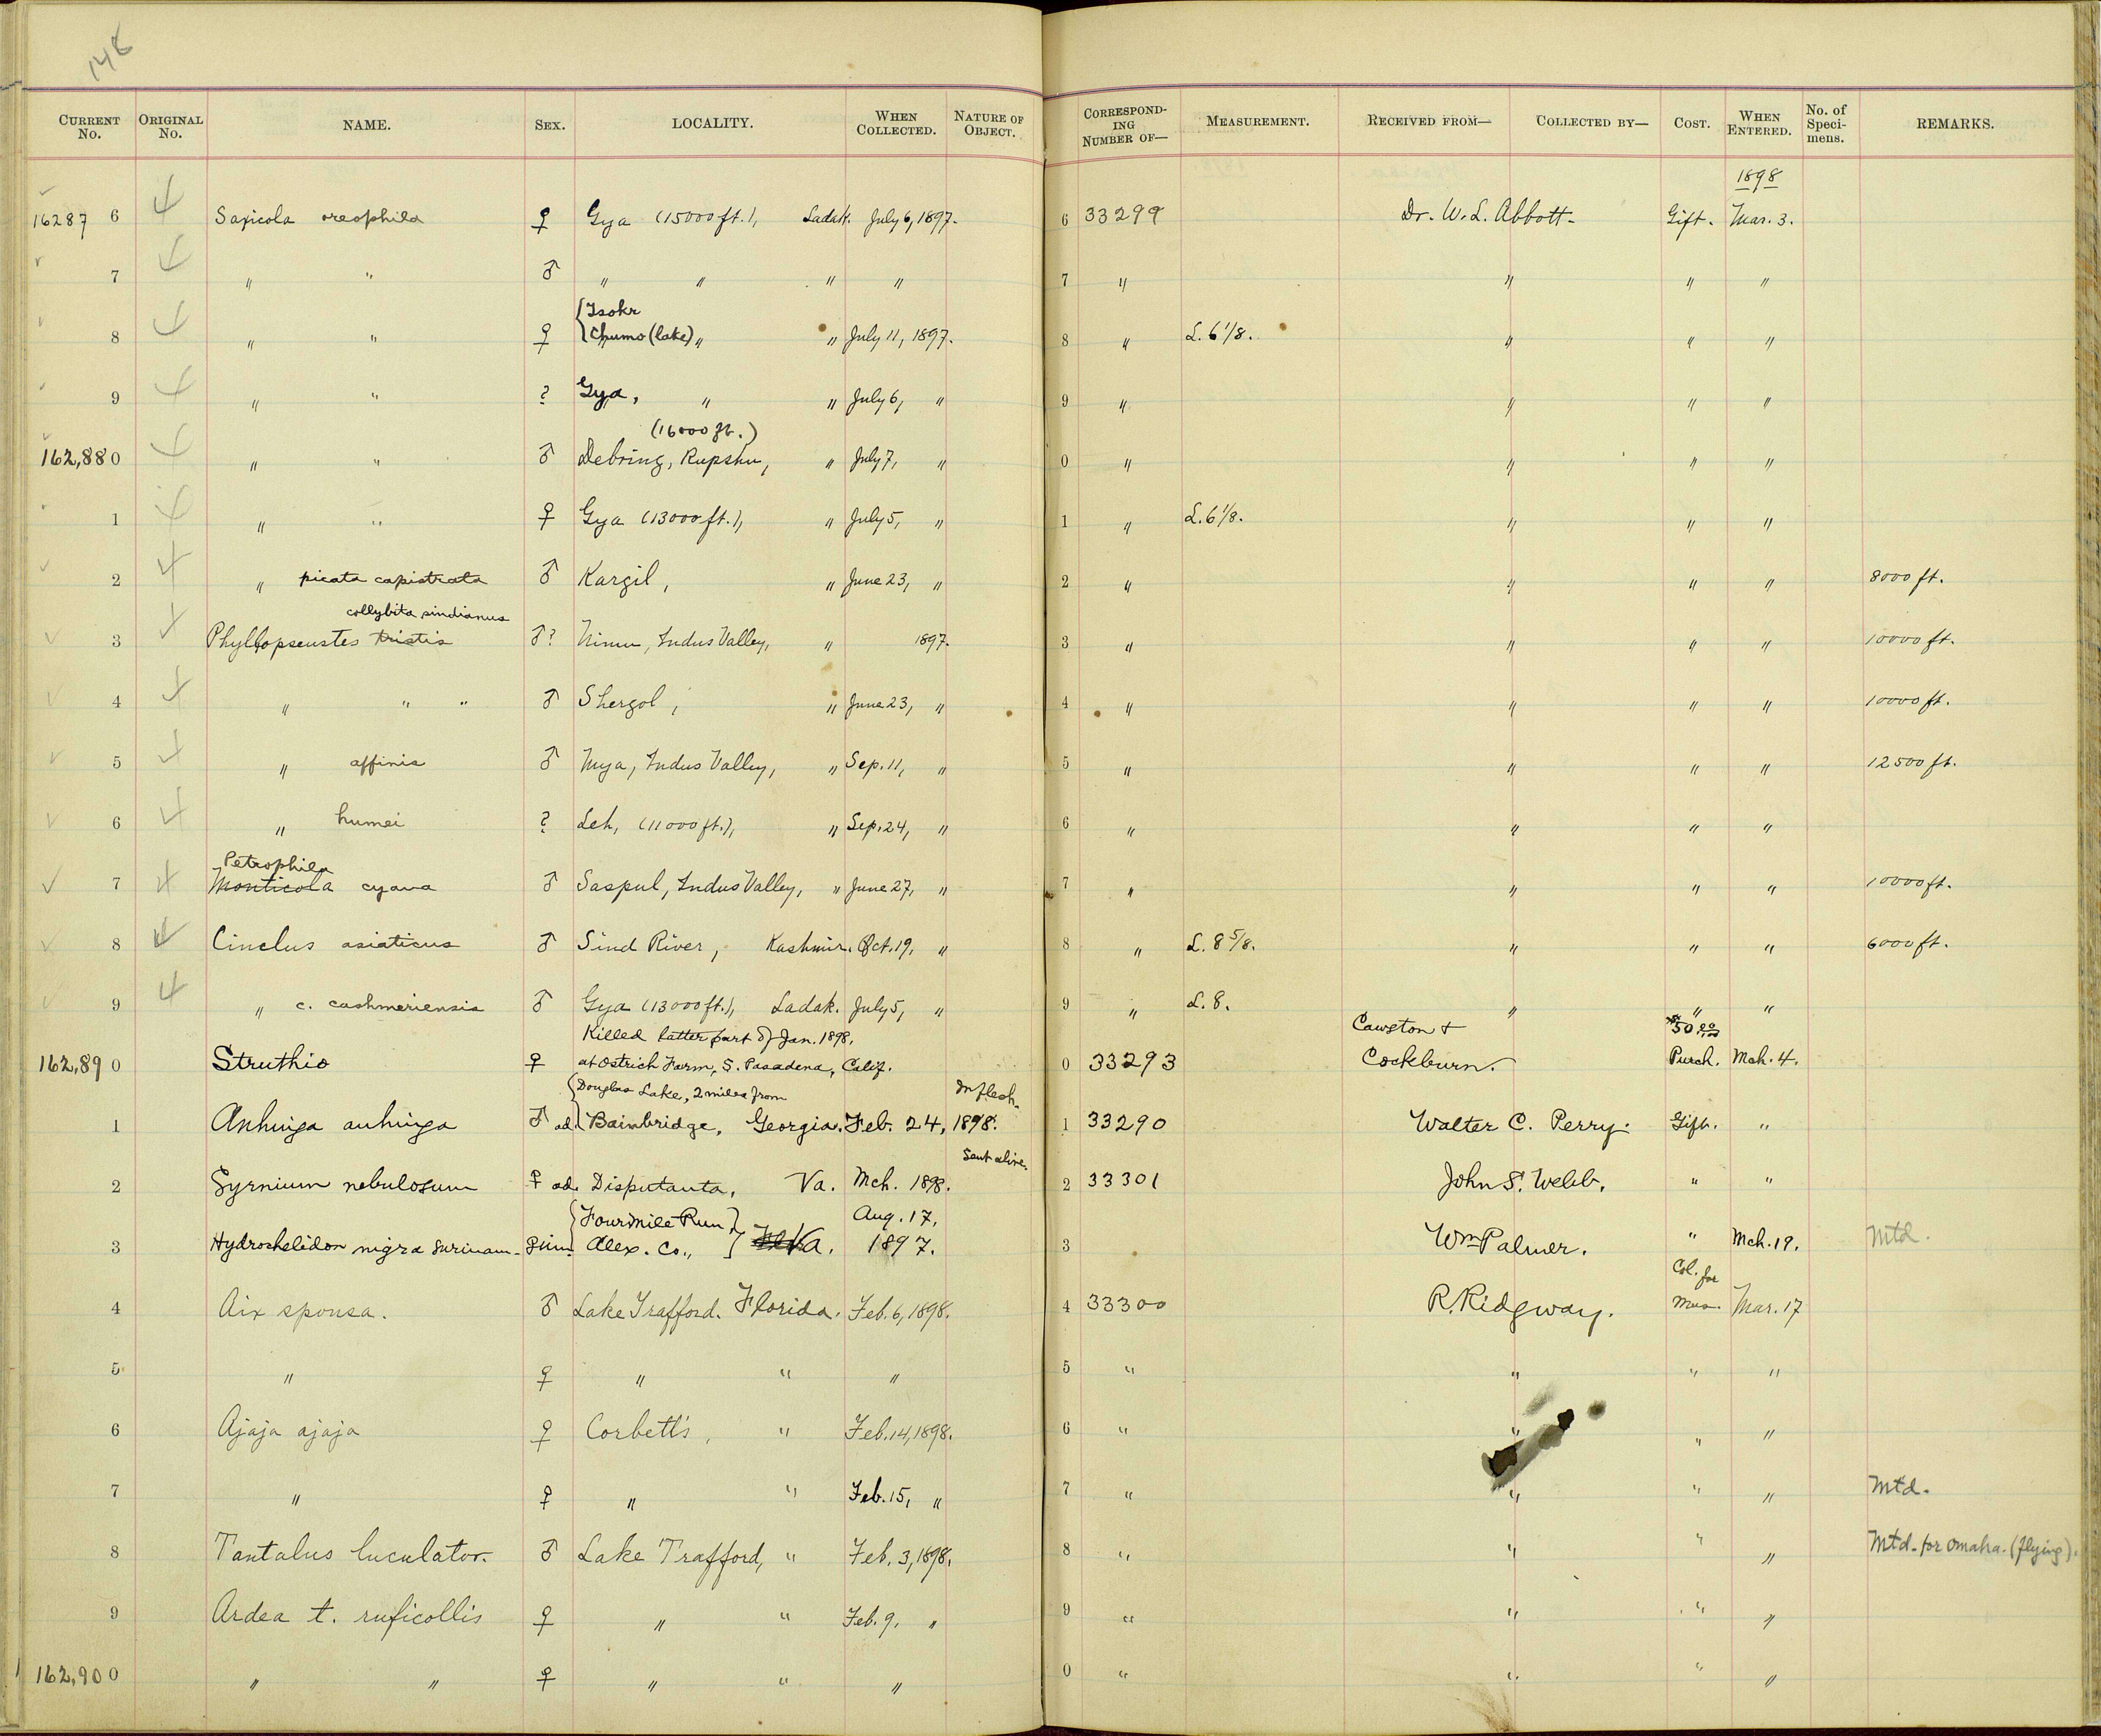 148
CURRENT No. ORIGINAL No. NAME. SEX. LOCALITY. WHEN COLLECTED. NATURE OF OBJECT. CORRESPONDING NUMBER OF— MEASUREMENT. RECEIVED FROM— COLLECTED BY— COST. WHEN ENTERED. No. of Specimens. REMARKS.
1898
16287 6 Saxicola oreophila ♀ Gya (15000 ft.), Ladak. July 6, 1897. 6 33299 Dr. W. L. Abbott. Gift. Mar. 3.
7 " " ♂ " " " " 7 " " " "
{Tsokr
8 " " ♀ Chumo (lake) " " July 11, 1897. 8 " L. 6 1/8. " " "
9 " " ? Gya, " " July 6, " 9 " " " "
(16000 ft.)
162,88 0 " " ♂ Debring, Rupshu, " July 7, " 0 " " " "
1 " " ♀ Gya (13000 ft.), " July 5, " 1 " L. 6 1/8. " " "
2 " picata capistrata ♂ Kargil, " June 23, " 2 " " " " 8000 ft.
collybita sindianus
3 Phyllopseustes tristis ♂? Nimu, Indus Valley, " 1897. 3 " " " " 10000 ft.
4 " " " ♂ Shergol, " June 23, " 4 " " " " 10000 ft.
5 " affinis ♂ Indus Valley, " Sep. 11, " 5 " " " " 12500 ft.
6 " humei ? Leh, (11000 ft.), " Sep. 24, " 6 " " " "
Petrophila
7 Monticola cyana ♂ Saspul, Indus Valley, " June 27, " 7 " " " " 10000 ft.
8 Cinclus asiaticus ♂ Sind River, Kashmir. Oct. 19, " 8 " L. 8 5/8. " " " 6000 ft.
9 " c. cashmeriensis ♂ Gya (13000 ft.), Ladak. July 5, " 9 " L. 8. " " "
Killed latter part of Jan. 1898, Cawston & $50.00
162,89 0 Struthio ♀ at Ostrich Farm, S. Pasadena, Calif. 0 33293 Cockburn. Purch. Mch. 4.
{Douglas Lake, 2 miles from In flesh.
1 Anhinga anhinga ♂ ad. Bainbridge, Georgia. Feb. 24, 1898. 1 33290 Walter C. Perry. Gift. "
Sent alive.
2 Syrnium nebulosum ♀ ad. Disputanta, Va. Mch. 1898. 2 33301 John S. Webb. " "
{Fourmile Run} Aug. 17,
3 Hydrochelidon nigra surinam- im. Alex. Co., Va. 1897. 3 Wm Palmer. " Mch. 19. Mtd.
Col. for
4 Aix sponsa. ♂ Lake Trafford. Florida. Feb. 6, 1898. 4 33300 R. Ridgway. Mus. Mar. 17
5 " ♀ " " " 5 " " " "
6 Ajaja ajaja ♀ Corbett's, " Feb. 14, 1898. 6 " " " "
7 " ♀ " " Feb. 15, " 7 " " " " Mtd.
8 Tantalus luculator. ♂ Lake Trafford, " Feb. 3, 1898. 8 " " " " Mtd. for Omaha. (flying).
9 Ardea t. ruficollis ♀ " " Feb. 9, " 9 " " " "
162,90 0 " " ♀ " " " 0 " " " "